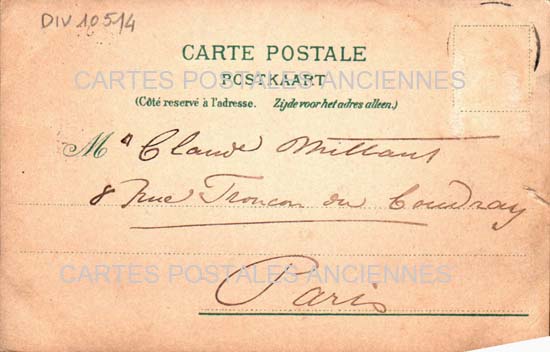 DIV 10514
CARTE POSTALE
CARTES POSTALES ANCIENNES
POSTKAART
(Côté reservé à l'adresse. Zijde voor het adres alleen.)
M Claude Millaut
8 Rue Tronçon du Coudray
CARTES POSTALES ANCIENNES
Paris